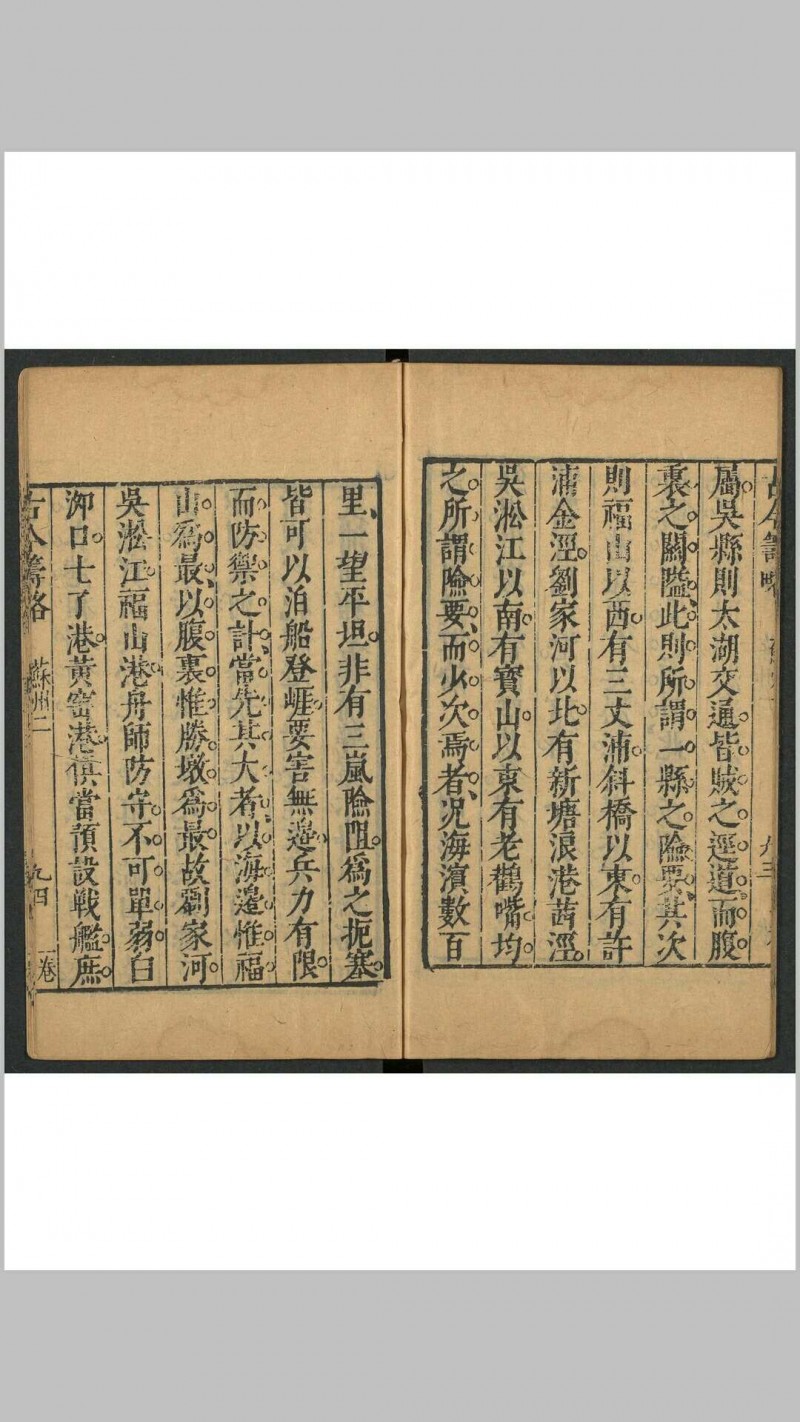 屬吳縣則太湖交通皆賊之逕道而腹
裏之關隘此則所謂一縣之險要其次
則福山以西有三丈浦斜橋以東有許
浦金涇劉家河以北有新塘浪港茜涇
吳淞江以南有寶山以東有老鸛嘴均
之所謂險要而少次焉者況海濱數百
里一望平坦非有三嵐險阻爲之扼塞
皆可以泊船登崕要害無邊兵力有限
而防禦之計當先其大者以海邊惟福
山爲最以腹裏惟勝墩爲最故劉家河
吳淞江福山港舟師防守不可單弱白
泖口七了港黃窑港俱當預設戰艦庶
古今籌略 蘇州二 九四 一卷